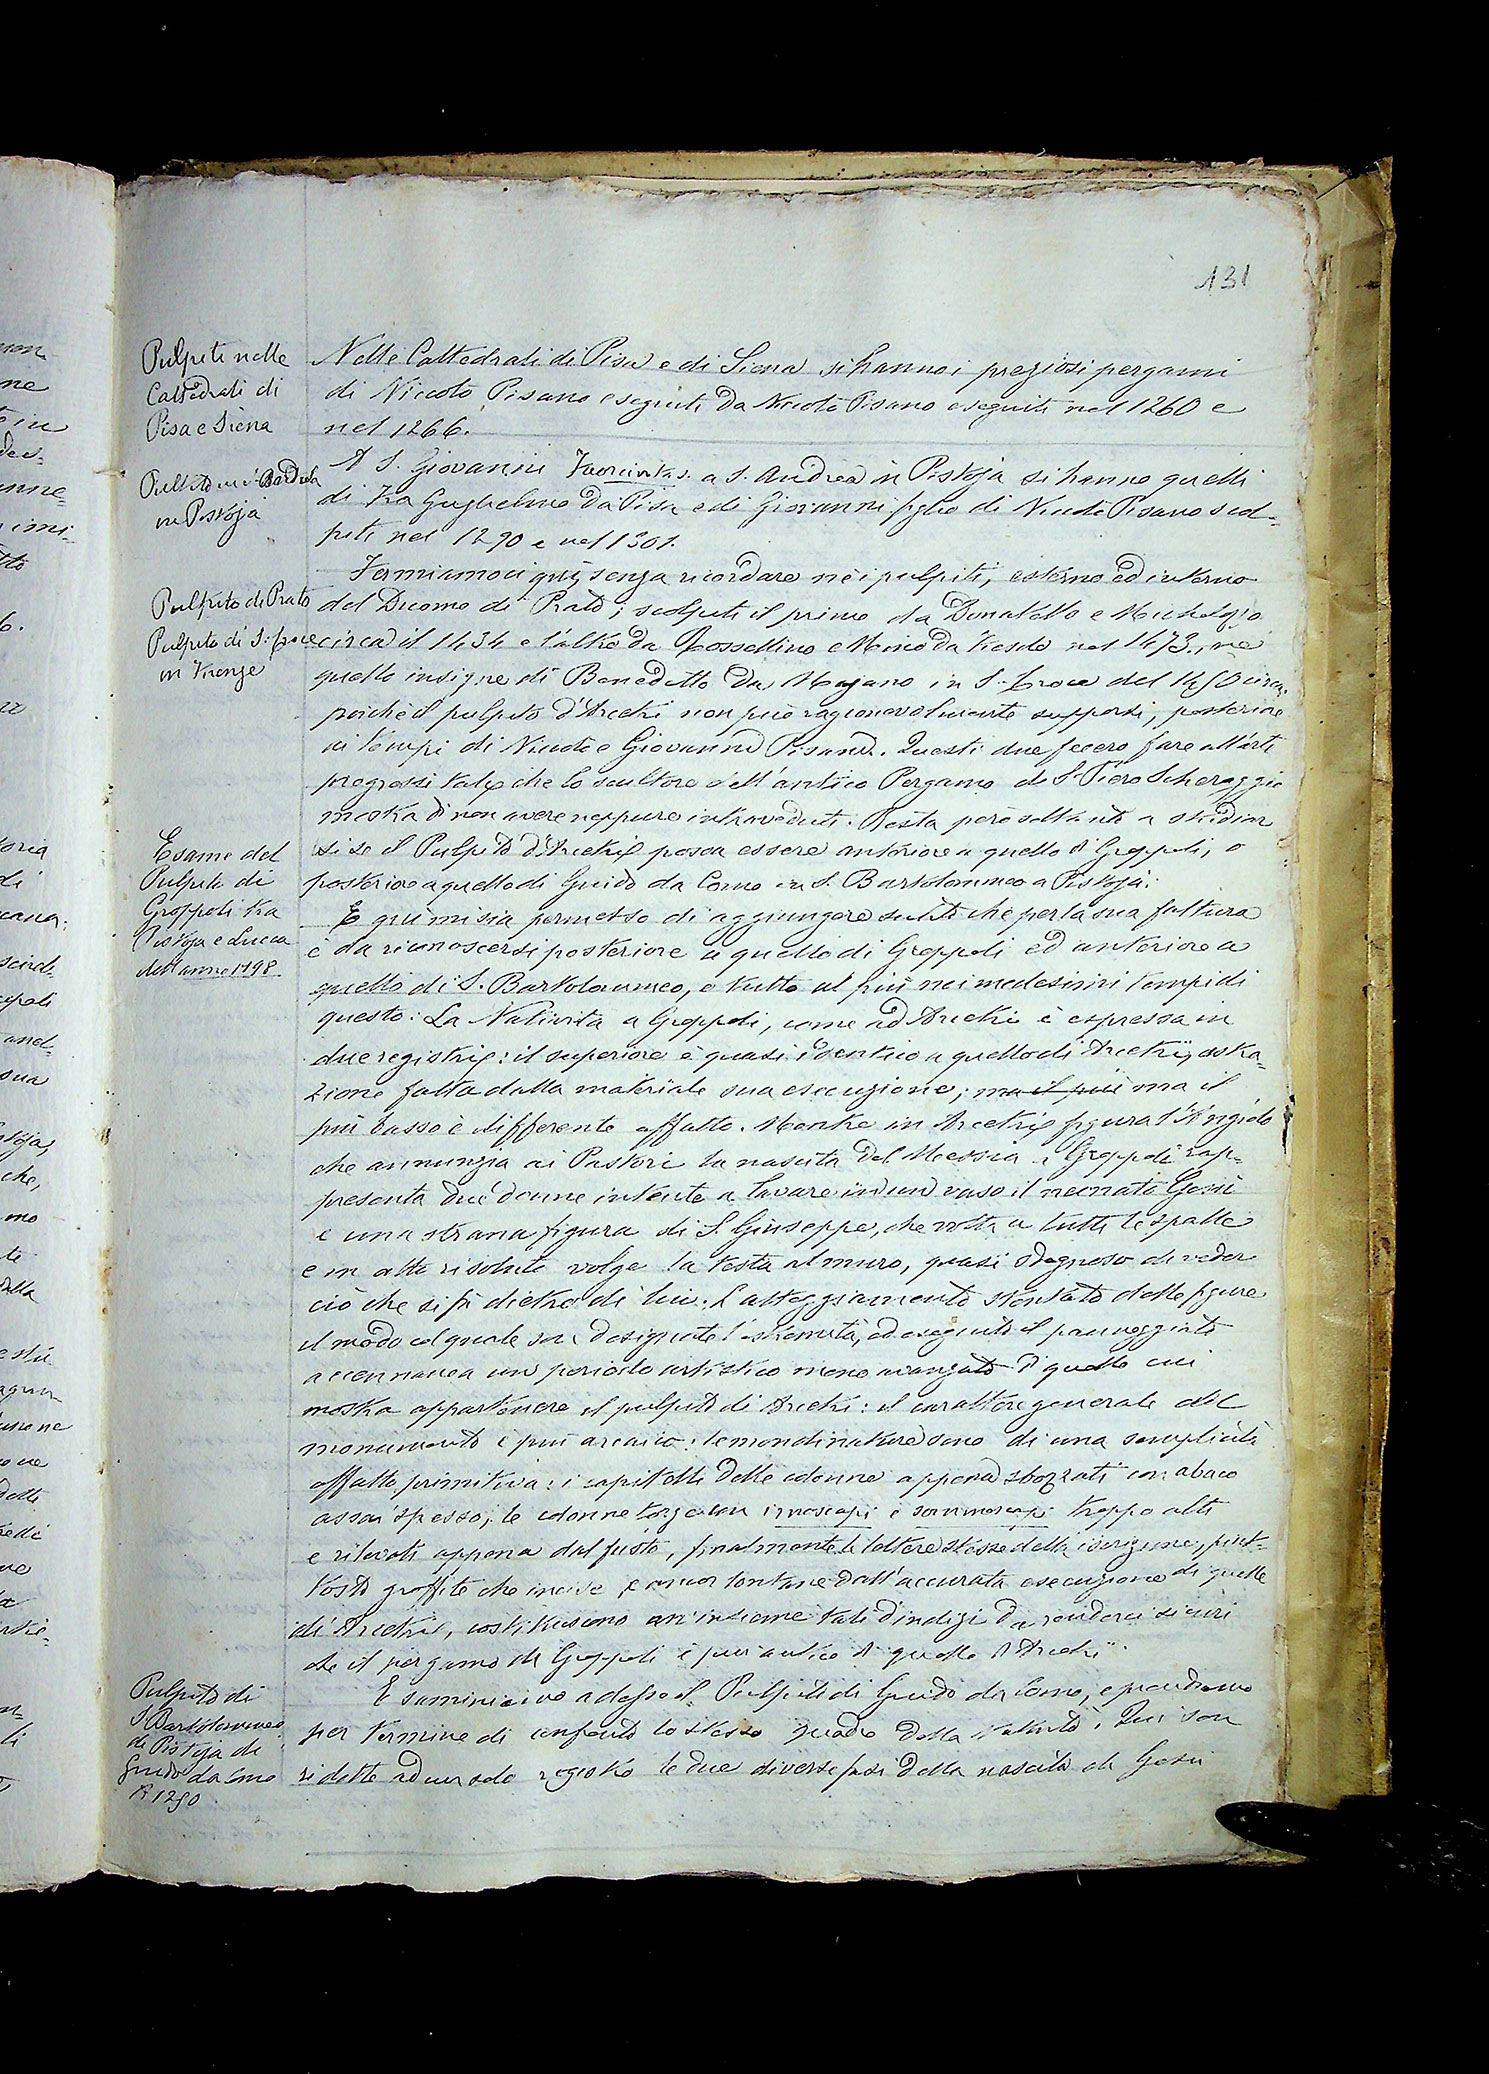 131
Pulpiti nelle
Cattedrali di
Pisa e Siena
Nelle Cattedrali di Pisa e di Siena si hanno i preziosi pergami
di Niccolò Pisano eseguiti da Niccolò Pisano eseguiti nel 1260 e
nel 1266.
Pulpito in S. Andrea
in Pistoja
A S. Giovanni Fuorcivitas a S. Andrea in Pistoja si hanno quelli
di Fra Guglielmo da Pisa e di Giovanni figlio di Niccolò Pisano scol-
piti nel 1290 e nel 1301.
Pulpito di Prato
Pulpito di S. Croce
in Firenze
Fermiamoci qui, senza ricordare nè i pulpiti, esterno ed interno
del Duomo di Prato; scolpiti il primo da Donatello e Michelozzo
circa il 1434 e l'altro da Rossellino e Mino da Fiesole nel 1473, nè
quello insigne di Benedetto da Majano in S. Croce del 1450 circa,
poichè il pulpito d'Arcetri non può ragionevolmente supporsi, posteriore
ai tempi di Niccolò e Giovanni Pisano. Questi due fecero fare all'arte
progressi tali che lo scultore dell'antico Pergamo di S. Piero Scheraggio
mostra di non avere neppure intraveduti. Resta però soltanto a studiar
si se il Pulpito d'Arcetri possa essere anteriore a quello di Groppoli, o
posteriore a quello di Guido da Como in S. Bartolommeo a Pistoja.
Esame del
Pulpito di
Groppoli tra
Pistoja e Lucca
dell'anno 1198.
E qui mi sia permesso di aggiungere subito che per la sua fattura
è da riconoscersi posteriore a quello di Groppoli ed anteriore a
quello di S. Bartolommeo, o tutto al più nei medesimi tempi di
questo. La Natività a Groppoli, come ad Arcetri è espressa in
due registri: il superiore è quasi identico a quello di Arcetri, astra-
zione fatta dalla materiale sua esecuzione; ma il più ma il
più basso è differente affatto. Mentre in Arcetri figura l'Angiolo
che annunzia ai Pastori la nascita del Messia a Groppoli rap-
presenta due donne intente a lavare in un vaso il neonato Gesù
e una strana figura di S. Giuseppe, che volta a tutti le spalle
e in atto risoluto volge la testa al muro, quasi sdegnoso di veder
ciò che si fa dietro di lui. L'atteggiamento stentato delle figure
il modo col quale son designate l'estremità, ed eseguito il panneggiato
accennano a un periodo artistico meno avanzato di quello cui
mostra appartenere il pulpito di Arcetri: il carattere generale del
monumento è più arcaico: le mondinature sono di una semplicità
affatto primitiva: i capitelli delle colonne appena sbozzati con abaco
assai spesso; le colonne tozze con imoscapi e sommoscapi troppo alti
e rilevati appena dal fusto, finalmente le lettere stesse della iscrizione, piut-
tosto graffite che incise e ancor lontane dall'accurata esecuzione di quelle
di Arcetri, costituiscono un insieme tale d'indizi da renderci sicuri
che il pergamo di Groppoli è più antico di quello d'Arcetri.
Pulpito di
S. Bartolommeo
di Pistoja di
Guido da Como
1250
Esaminiamo adesso il Pulpito di Guido da Como, e prendiamo
per termine di confronto lo stesso quadro della Natività. Qui son
ridotte ad un solo registro le due diverse fasi della nascita di Gesù